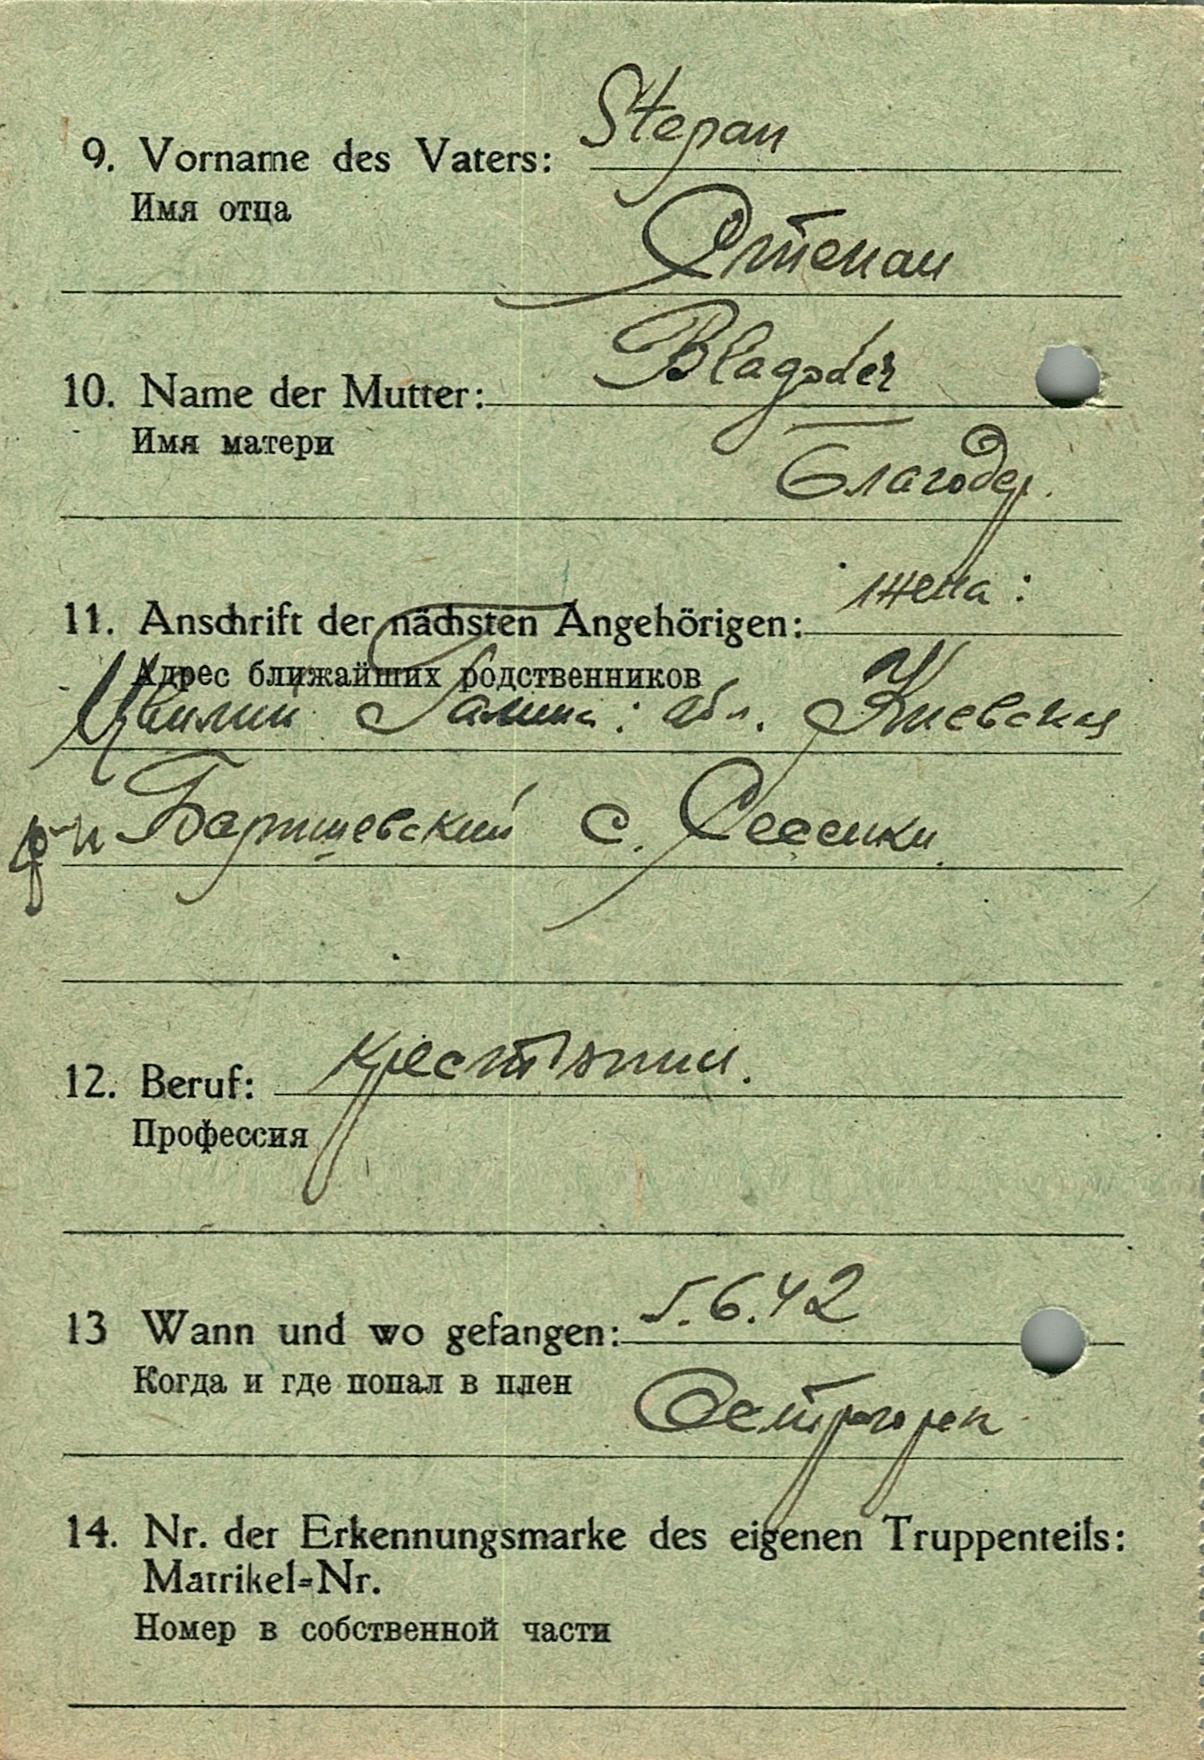 9. Vorname des Vaters: Stepan
Имя отца
Степан
Blagoder
10. Name der Mutter:
Имя матери
Благодер.
жена:
11. Anschrift der nächsten Angehörigen:
Адрес ближайших родственников
Цвилий Галина: обл. Киевская
р-н Баришевский с. Сеемки.
12. Beruf: крестянин.
Профессия
13 Wann und wo gefangen: 5.6.42
Когда и где попал в плен
Остргорск
14. Nr. der Erkennungsmarke des eigenen Truppenteils:
Matrikel-Nr.
Номер в собственной части